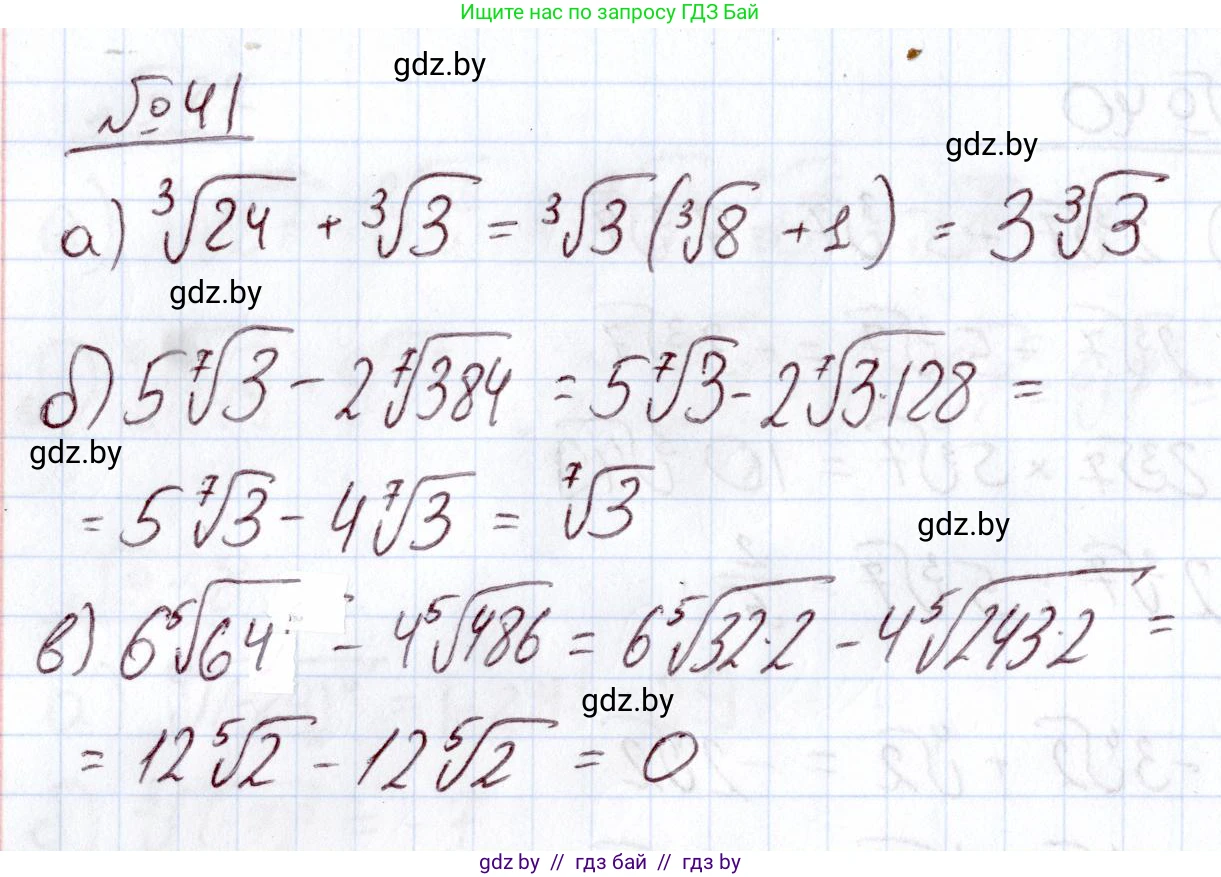 Ищите нас по запросу ГДЗ Бай
gdz.by
№ 41
gdz.by
а) ∛24 + ∛3 = ∛3 (∛8 + 1) = 3 ∛3
gdz.by
б) 5 ⁷√3 - 2 ⁷√384 = 5 ⁷√3 - 2 ⁷√3·128 =
gdz.by
= 5 ⁷√3 - 4 ⁷√3 = ⁷√3
gdz.by
в) 6 ⁵√64 - 4 ⁵√486 = 6 ⁵√32·2 - 4 ⁵√243·2 =
gdz.by
= 12 ⁵√2 - 12 ⁵√2 = 0
gdz by // гдз бай // гдз by